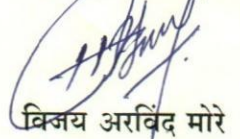 विजय अरविंद मोरे